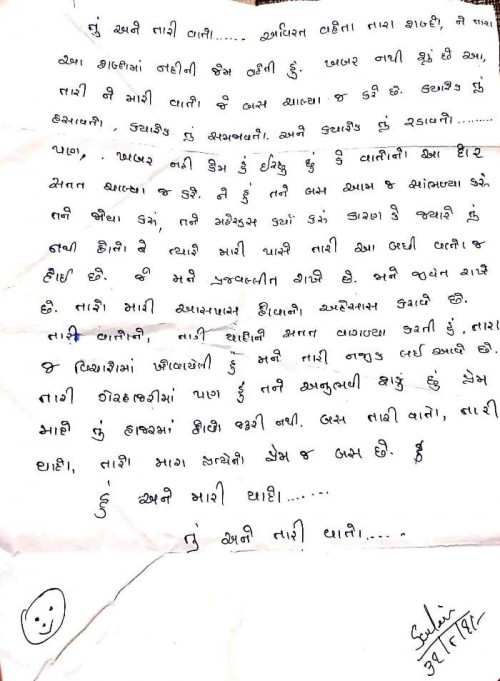 તું અને તારી વાતો...... અવિરત વહેતા તારા શબ્દો, ને તારા
આ શબ્દોમાં નદીની જેમ વહેતી હું. ખબર નથી શું છે આ,
તારી ને મારી વાતો જે બસ ચાલ્યા જ કરે છે. ક્યારેક તું
હસાવતો, ક્યારેક તું સમજાવતો. અને ક્યારેક તું રડાવતો.........
પણ, ખબર નહી કેમ હું ઈચ્છુ છું કે વાતોનો આ દોર
સતત ચાલ્યા જ કરે. ને હું તને બસ આમ જ સાંભળ્યા કરું
તને જોયા કરું, તને મહેસૂસ કર્યા કરું કારણ કે જ્યારે તું
નથી હોતો ત્યારે મારી પાસે તારી આ બધી વાતો જ
હોઈ છે. જે મને પ્રજવલ્લીત રાખે છે. મને જીવંત રાખે
છે. તારો મારી આસપાસ હોવાનો અહેસાસ કરાવે છે.
તારી વાતોને, તારી યાદોને સતત વાગોળ્યા કરતી હું. તારા
જ વિચારોમાં ખોવાયેલી હું મને તારી નજીક લઈ આવે છે.
તારી ગેરહાજરીમાં પણ હું તને અનુભવી શકું છું પ્રેમ
માટે તું હાજરમાં હોવો જરૂરી નથી. બસ તારી વાતો, તારી
યાદો, તારો મારા પ્રત્યેનો પ્રેમ જ બસ છે.
હું અને મારી યાદો.......
તું અને તારી વાતો......